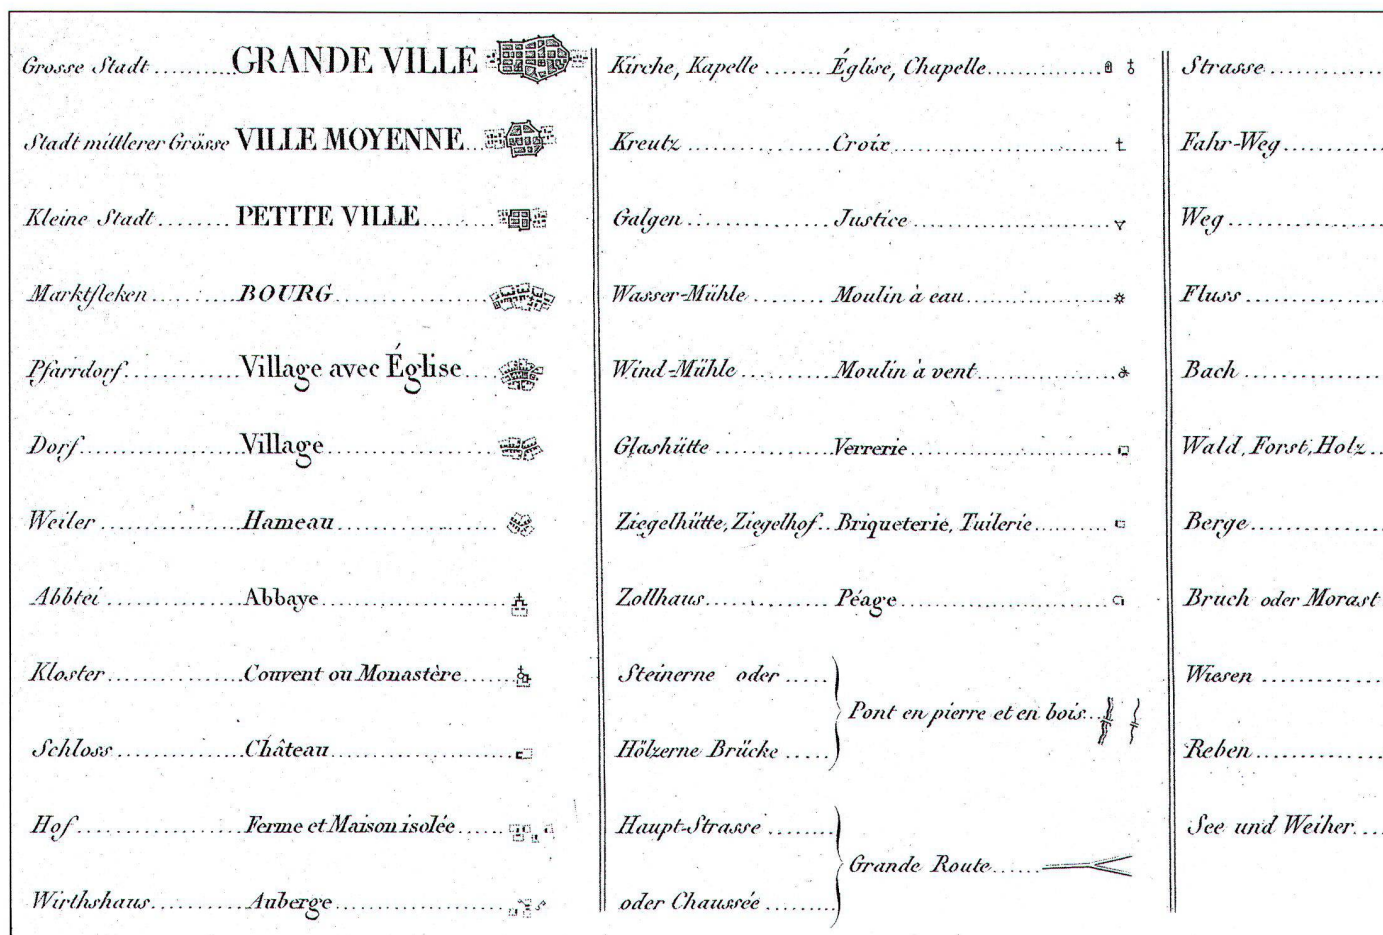 Grosse Stadt ........ GRANDE VILLE
Stadt mittlerer Grösse VILLE MOYENNE
Kleine Stadt ....... PETITE VILLE
Marktfleken ........ BOURG
Pfarrdorf ........ Village avec Église
Dorf ........ Village
Weiler ........ Hameau
Abbtei ........ Abbaye
Kloster ........ Couvent ou Monastère
Schloss ........ Château
Hof ........ Ferme et Maison isolée
Wirthshaus ........ Auberge
Kirche, Kapelle ....... Église, Chapelle
Kreutz ........ Croix
Galgen ........ Justice
Wasser-Mühle ....... Moulin à eau
Wind-Mühle ........ Moulin à vent
Glashütte ........ Verrerie
Ziegelhütte, Ziegelhof .. Briqueterie, Tuilerie
Zollhaus ........ Péage
Steinerne oder .....
Pont en pierre et en bois
Hölzerne Brücke .....
Haupt-Strasse ........
Grande Route
oder Chaussée ........
Strasse
Fahr-Weg
Weg
Fluss
Bach
Wald, Forst, Holz
Berge
Bruch oder Morast
Wiesen
Reben
See und Weiher